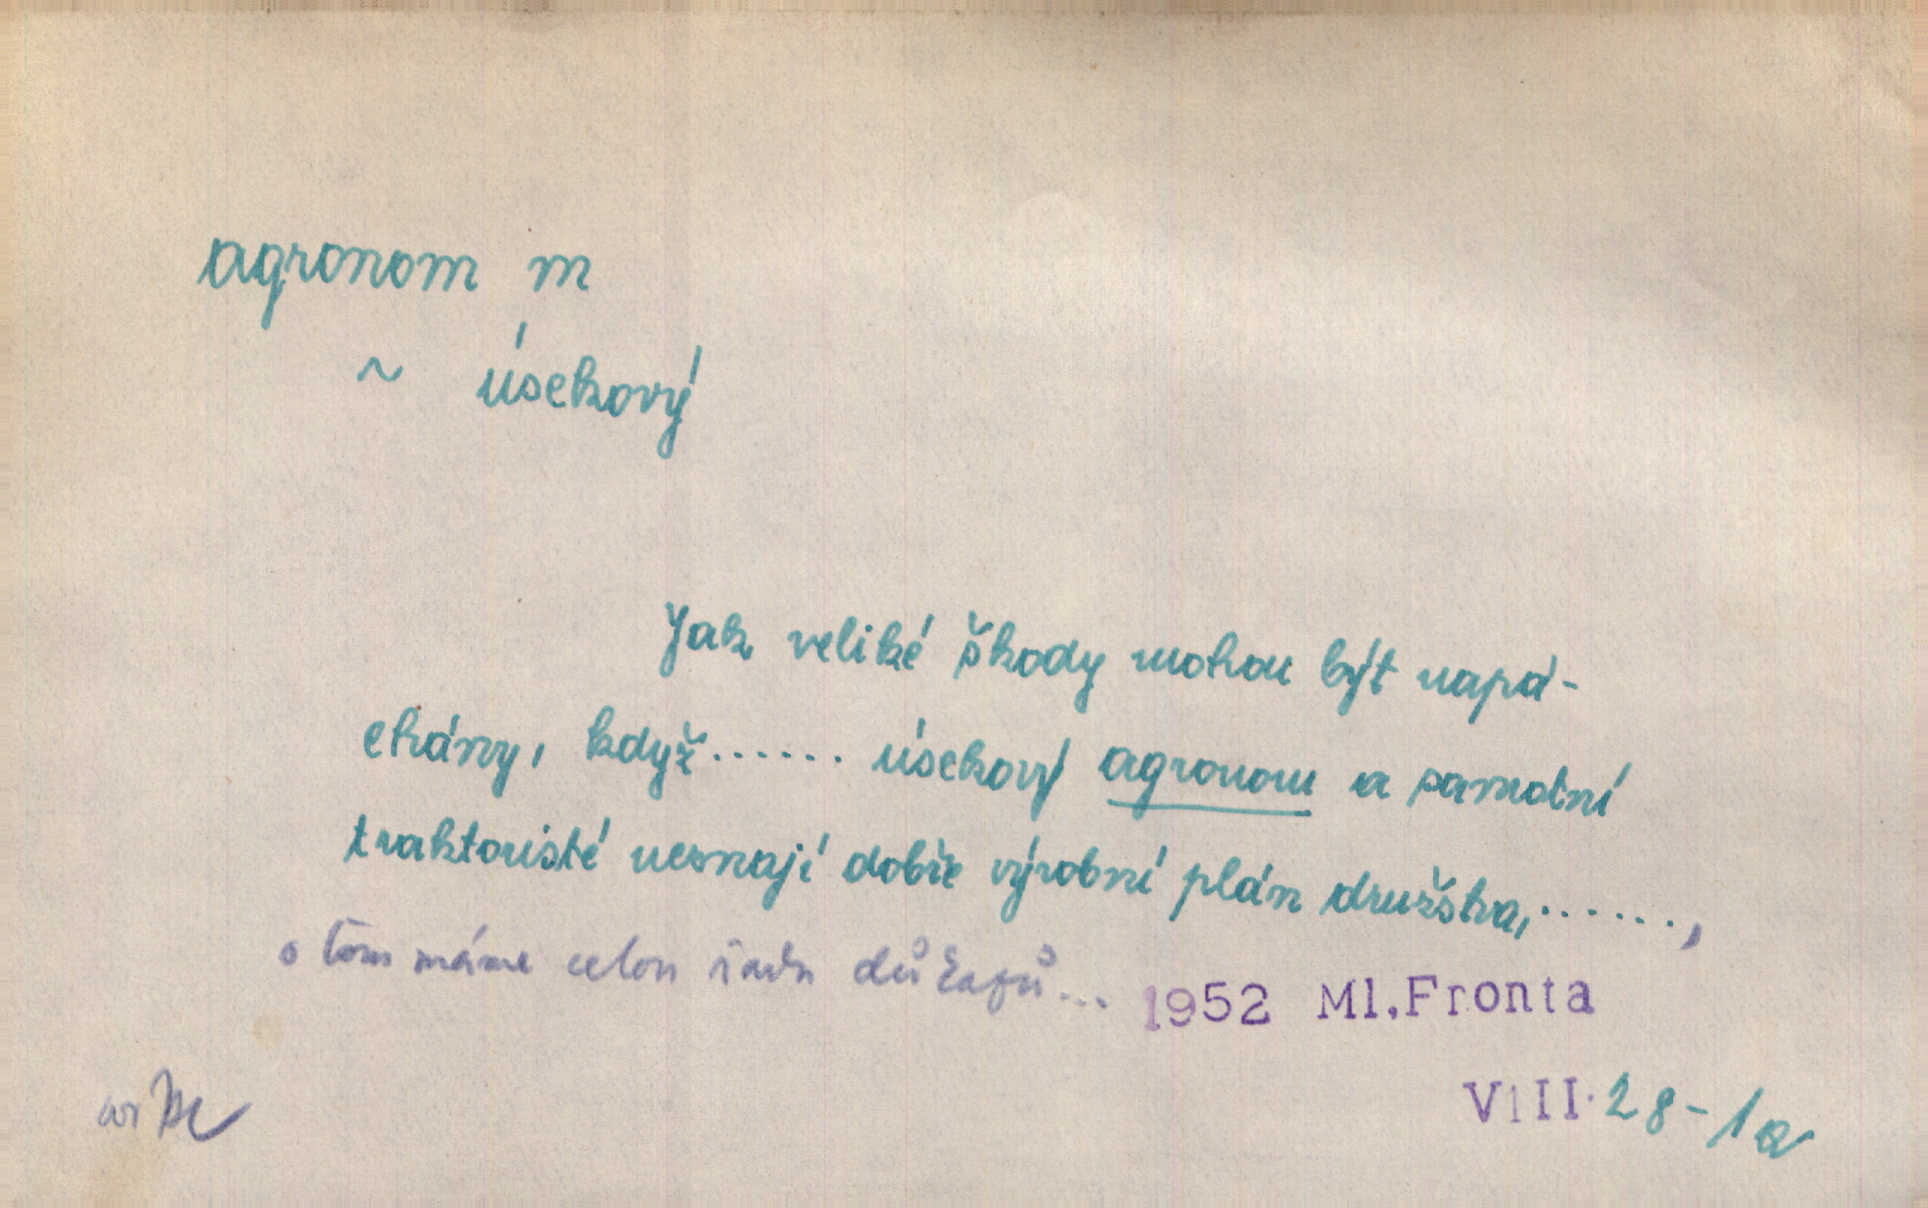 agronom m
~ úsekový
Jak veliké škody mohou být napá-
chány, když...... úsekový agronom a samotní
traktoristé neznají dobře výrobní plán družstva,......,
o tom máme celou řadu důkazů...
1952 Ml.Fronta
VIII. 28-1a